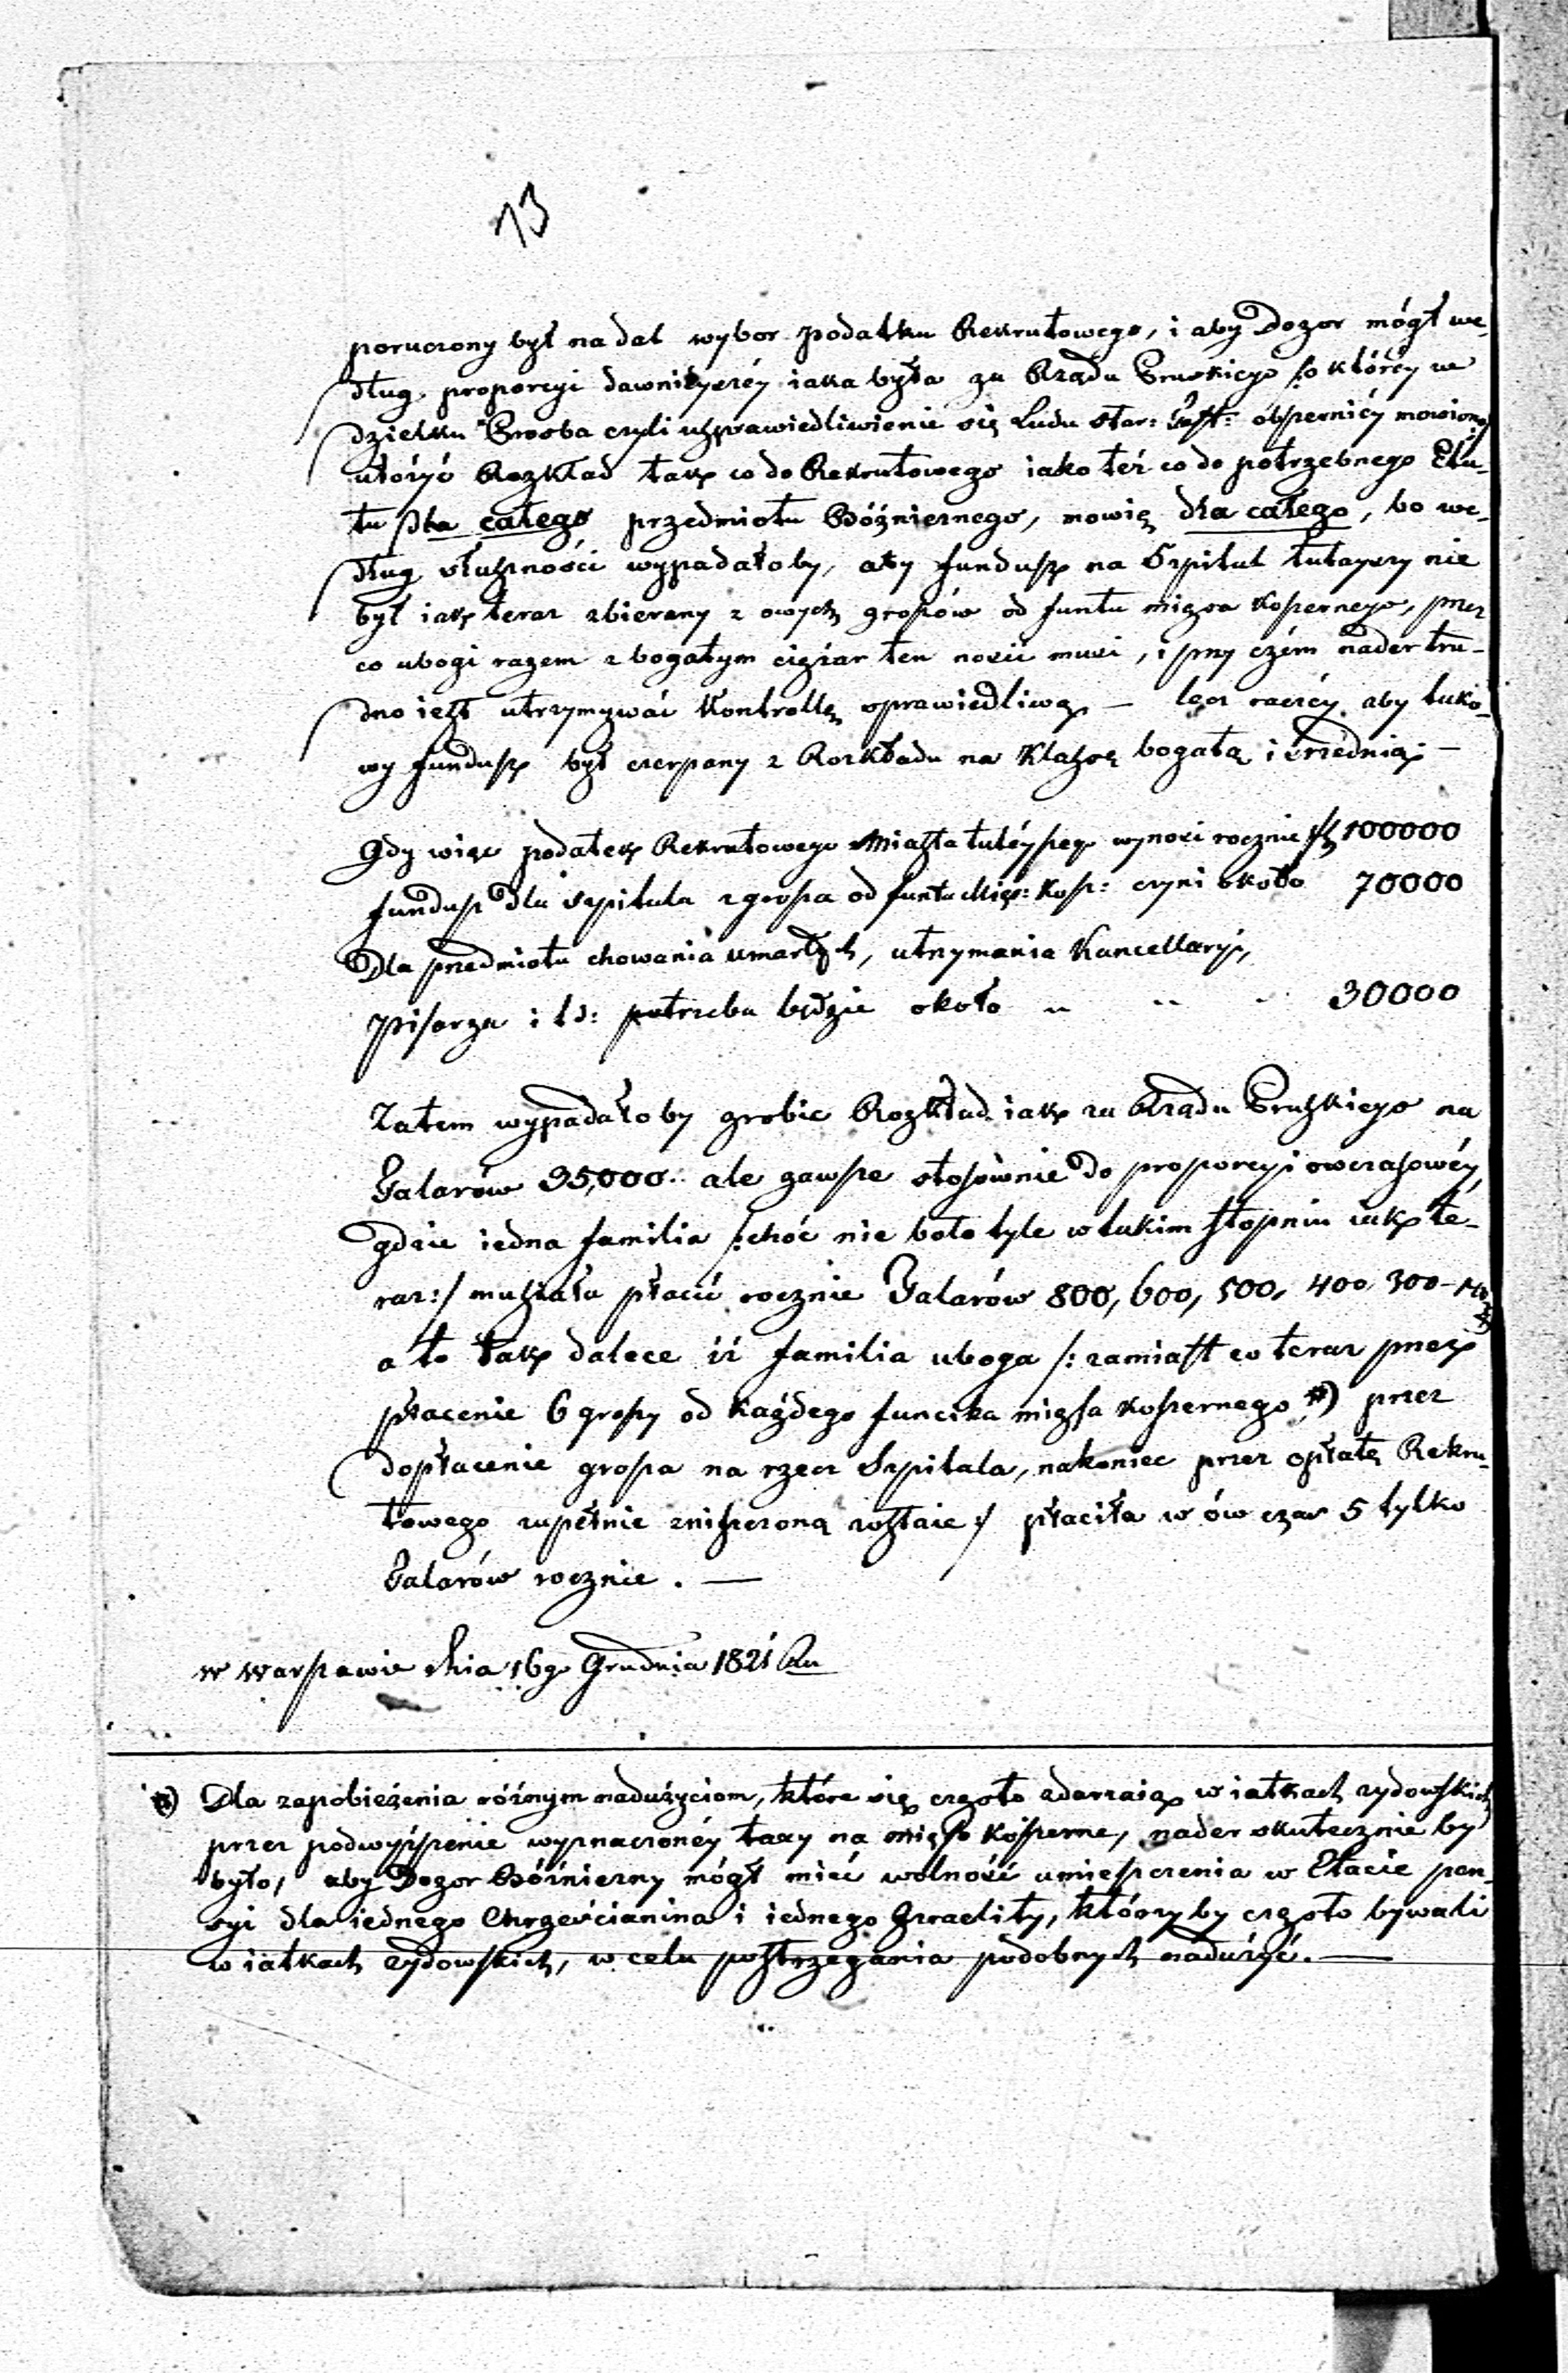 13
poruczony był nadal wybor podatku Rekrutowego, i aby Dozor mógł we-
dług proporcyi dawnieyszéy iaka była za Rządu Pruskiego /:o któréy w
dziełku Prosba czyli usprawiedliwienie się Ludu star: Test: obszerniéy mowiono:/
ułożyć Rozkład tak co do Rekrutowego iako też co do potrzebnego Eta-
tu dla całego przedmiotu Bóżniernego, mowię dla całego, bo we-
dług słuszności wypadałoby, aby fundusz na Szpital tutayszy nie
był iak teraz zbierany z owych groszów od funtu mięsa koszernego, przez
co ubogi razem z bogatym ciężar ten nosić musi, i przy czém nader tru-
dno iest utrzymywać Kontrollę sprawiedliwą — lecz raczéy aby tako-
wy fundusz był czerpany z Rozkładu na Klassę bogatą i srzednią. —
Gdy więc podatek Rekrutowego Miasta tuteyszego wynosi rocznie 100000
fundusz dla szpitala z grosza od funta Mięs: Kosz: czyni około 70000
Dla przedmiotu chowania umarłych, utrzymania Kancellaryi,
Pisarza i t d: potrzeba będzie około " " " 30000
Zatem wypadałoby zrobic Rozkład iak za Rządu Pruskiego na
Talarów 35,000. ale zawsze stosownie do proporcyi owczasowéy,
gdzie iedna familia /:choć nie było tyle w takim stopniu iak te-
raz:/ musiała płacić rocznie Talarów 800, 600, 500, 400, 300 —
a to tak dalece iż familia uboga /: zamiast co teraz przez
płacenie 6 groszy od każdego funcika mięsa koszernego *) przez
dopłacenie grosza na rzecz Szpitala, nakoniec przez opłatę Rekru-
towego zupełnie zniszczoną zostaie :/ płaciła w ów czas 5 tylko
Talarów rocznie. —
w Warszawie dnia 16go Grudnia 1821 Ru
*) Dla zapobieżenia różnym nadużyciom, które się często zdarzaią w iatkach zydowskich
przez podwyższenie wyznaczonéy taxy na mięso koszerne, nader skutecznie by
było, aby Dozor Bóżnierny mógł mieć wolność umieszczenia w Etacie pen-
syi dla iednego Chrześcianina i iednego Izraelity, którzy by często bywali
w iatkach zydowskich, w celu postrzegania podobnych nadużyć. —